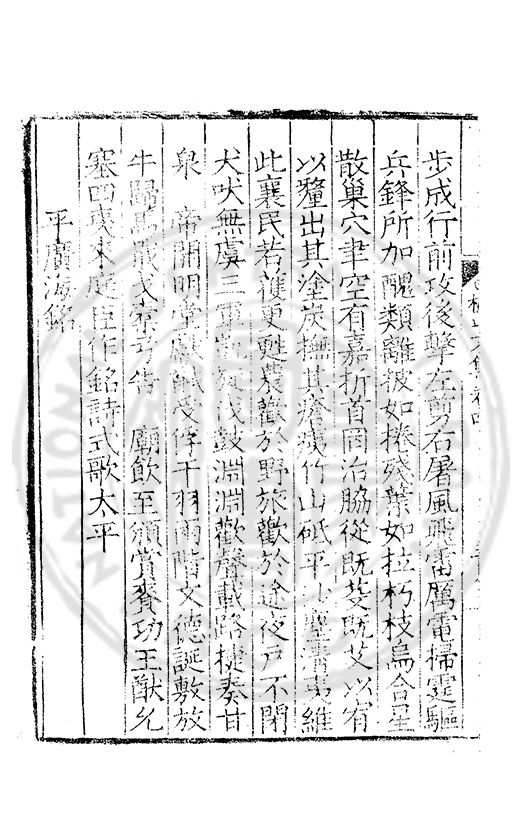 步成行前攻後擊左剪右屠風飛雷厲電掃霆驅
兵鋒所加醜類離披如捲殘葉如拉朽枝烏合星
散巢穴聿空有嘉折首罔治脅從既芟既艾以宥
以釐出其塗炭撫其瘡殘竹山砥平 塵清夷維
此襄民若獲更甦農歡於野旅歡於途夜戶不閉
犬吠無虞三軍凱旋伐鼓淵淵歡聲載路捷奏甘
泉 帝開明堂獻馘受俘干羽兩階文德誕敷放
牛歸馬戢戈櫜弓告 廟飲至頒賞賚功王猷允
塞四夷來庭臣作銘詩式歌太平
平廣海銘